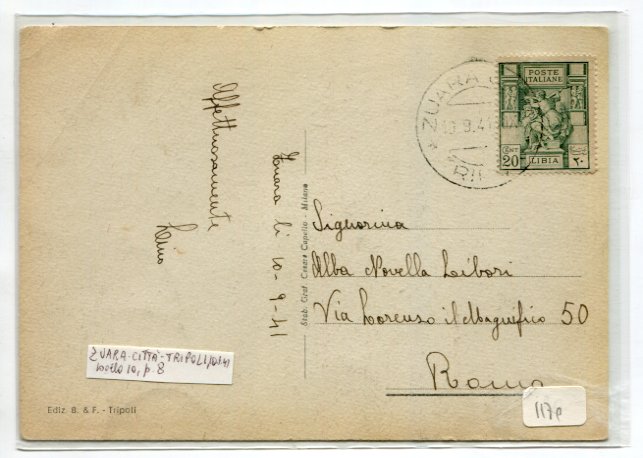 Affettuosamente
Lino
Zuara li 10-9-41
Stab. Graf. Cesare Capello - Milano
ZUARA
10.9.41
POSTE
ITALIANE
CENT
20
LIBIA
٢٠
Signorina
Alba Novella Libori
Via Lorenzo il Magnifico 50
Roma
ZUARA-CITTÀ-TRIPOLI
bollo 10, p. 8
Ediz. B. & F. - Tripoli
117e